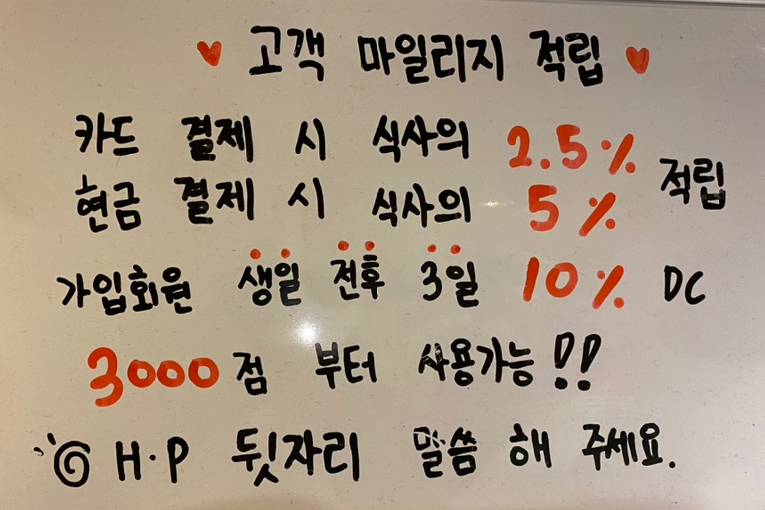 고객 마일리지 적립
카드 결제 시 식사의 2.5%
현금 결제 시 식사의 5% 적립
가입회원 생일 전후 3일 10% DC
3000점 부터 사용가능!!
H·P 뒷자리 말씀 해 주세요.